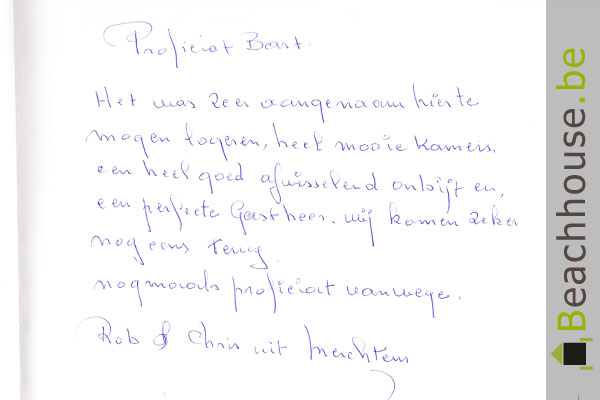 Proficiat Bart.
Het was zeer aangenaam hier te
mogen logeren, heel mooie kamers.
een heel goed afwisselend ontbijt en,
een perfecte Gastheer. wij komen zeker
nog eens terug.
nogmaals proficiat vanwege.
Rob & Chris uit Merchtem
Beachhouse.be